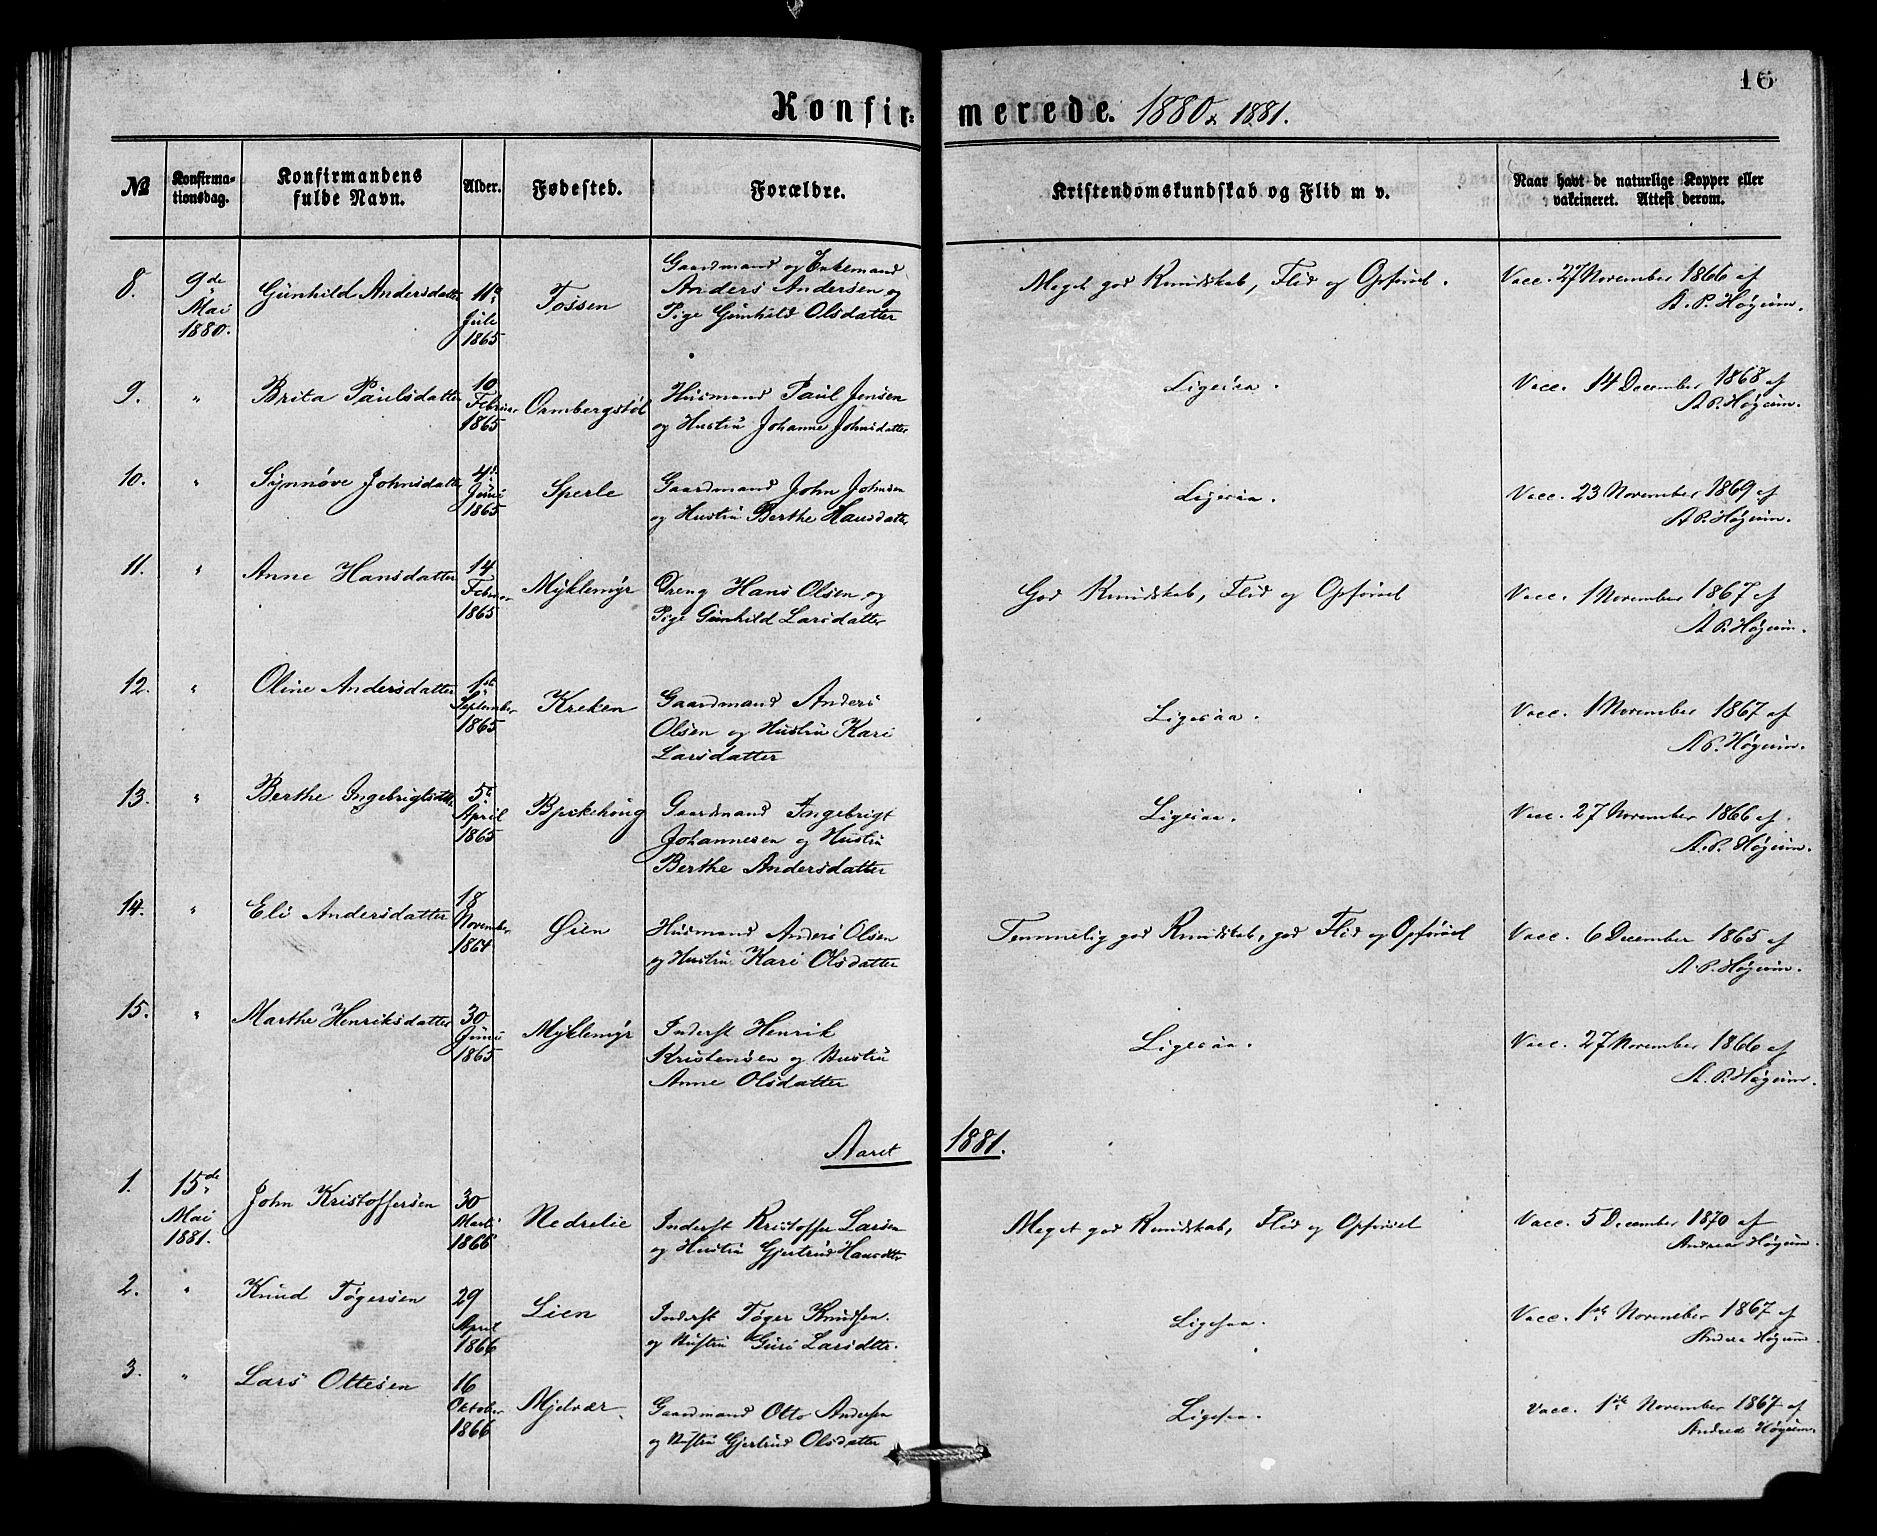 16
Konfir= merede. 1880 & 1881.
№
Konfirma-
tionsdag.
Konfirmandens
fulde Navn.
Alder.
Fødested.
Forældre.
Kristendomskundskab og Flid m v.
Naar havt de naturlige Kopper eller
vakcineret. Attest derom.
8.
9de
Mai
1880.
Gunhild Andersdatter
11te
Juli
1865
Tossen
Gaardmand og Enkemand
Anders Andersen og
Pige Gunhild Olsdatter
Meget god Kundskab, Flid og Opførsel.
Vacc. 27 November 1866 af
A. P. Høgeim.
9.
"
Brita Paulsdatter
10
Februar
1865
Ormbergstøl
Husmand Paul Jensen
og Hustru Johanne Johnsdatter
Ligesaa.
Vacc. 14 December 1868 af
A P. Høgeim.
10.
"
Synnøve Johnsdatter
4de
Juni
1865
Sperle
Gaardmand John Johnsen
og Hustru Berthe Hansdatter
Ligesaa.
Vacc. 23 November 1869 af
A P. Høgeim.
11.
"
Anne Hansdatter
14
Februar
1865
Myklemyr
Dreng Hans Olsen og
Pige Gunhild Larsdatter
God Kundskab, Flid og Opførsel
Vacc. 1 November 1867 af
A P. Høgeim.
12.
"
Oline Andersdatter
1ste
September
1865
Kreken
Gaardmand Anders
Olsen og Hustru Kari
Larsdatter
Ligesaa.
Vacc. 1 November 1867 af
A P. Høgeim.
13.
"
Berthe Ingebrigtsdtr
5te
April
1865
Bjrkehoug
Gaardmand Ingebrigt
Johannesen og Hustru
Berthe Andersdatter
Ligesaa.
Vacc. 27 November 1866 af
A. P. Høgeim.
14.
"
Eli Andersdatter
18
November
1864
Øien
Husmand Anders Olsen
og Hustru Kari Olsdatter
Temmelig god Kundskab, god Flid og Opførsel
Vacc. 6 December 1865 af
A. P. Høgeim.
15.
"
Marthe Henriksdatter
30
Juni
1865
Myklemyr
Inderst Henrik
Kristensen og Hustru
Anne Olsdatter
Ligesaa.
Vacc. 27 November 1866 af
A. P. Høgeim.
Aaret 1881.
1.
15de
Mai
1881.
John Kristoffersen
30
Marts
1866
Nedrelie
Inderst Kristoffer Larsen
og Hustru Gjertrud Hansdtr
Meget god Kundskab, Flid og Opførsel
Vacc. 5 December 1870 af
Andrea Høgeim.
2.
"
Knud Tøgersen
29
April
1866
Lien
Inderst Tøger Knudsen
og Hustru Guri Larsdtr.
Ligesaa.
Vacc. 1ste November 1867 af
Andrea Høgeim.
3.
"
Lars Ottesen
16
Oktober
1866
Mjelvær.
Gaardmand Otto Andersen
og Hustru Gjertrud Olsdatter
Ligesaa.
Vacc. 1ste November 1867 af
Andrea Høgeim.